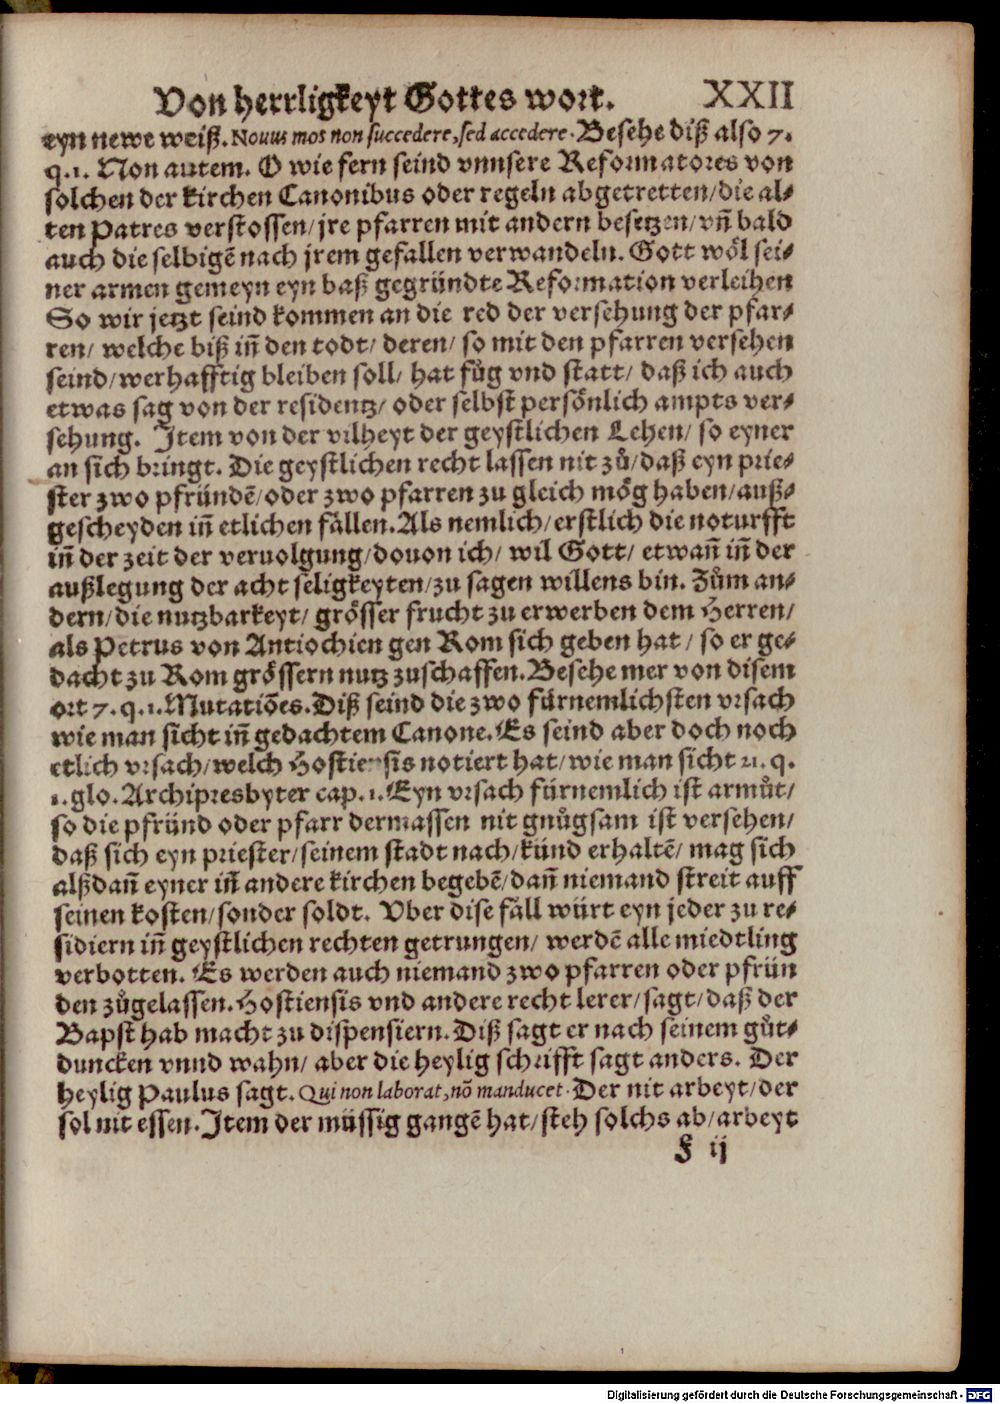 Von herrligkeyt Gottes wort. XXII
eyn newe weiß. Nouus mos non succedere, sed accedere. Besehe diß also 7.
q.1. Non autem. O wie fern seind vnnsere Reformatores von
solchen der kirchen Canonibus oder regeln abgetretten/die al-
ten Patres verstossen/jre pfarren mit andern besetzen/vñ bald
auch die selbigẽ nach jrem gefallen verwandeln. Gott wöl sei-
ner armen gemeyn eyn baß gegründte Reformation verleihen
So wir jetzt seind kommen an die red der versehung der pfar-
ren/ welche biß iñ den todt/ deren/ so mit den pfarren versehen
seind/werhafftig bleiben soll/ hat fůg vnd statt/ daß ich auch
etwas sag von der residentz/ oder selbst persönlich ampts ver-
sehung. Item von der vilheyt der geystlichen Lehen/ so eyner
an sich bringt. Die geystlichen recht lassen nit zů/daß eyn prie-
ster zwo pfründẽ/oder zwo pfarren zu gleich mög haben/auß-
gescheyden iñ etlichen fällen. Als nemlich/erstlich die noturfft
iñ der zeit der veruolgung/douon ich/ wil Gott/ etwañ iñ der
außlegung der acht seligkeyten/zu sagen willens bin. Zům an-
dern/die nutzbarkeyt/ grösser frucht zu erwerben dem Herren/
als Petrus von Antiochien gen Rom sich geben hat/ so er ge-
dacht zu Rom grössern nutz zuschaffen. Besehe mer von disem
ort 7. q. 1. Mutatiões. Diß seind die zwo fürnemlichsten vrsach
wie man sicht iñ gedachtem Canone. Es seind aber doch noch
etlich vrsach/welch Hostiensis notiert hat/wie man sicht 21. q.
1. glo. Archipresbyter cap. 1. Eyn vrsach fürnemlich ist armůt/
so die pfründ oder pfarr dermassen nit gnůgsam ist versehen/
daß sich eyn priester/seinem stadt nach/künd erhaltẽ/ mag sich
alßdañ eyner iñ andere kirchen begebẽ/dañ niemand streit auff
seinen kosten/sonder soldt. Vber dise fäll würt eyn jeder zu re-
sidiern iñ geystlichen rechten getrungen/ werdẽ alle miedtling
verbotten. Es werden auch niemand zwo pfarren oder pfrün
den zůgelassen. Hostiensis vnd andere recht lerer/sagt/daß der
Bapst hab macht zu dispensiern. Diß sagt er nach seinem gůt-
duncken vnnd wahn/ aber die heylig schrifft sagt anders. Der
heylig Paulus sagt. Qui non laborat, nõ manducet. Der nit arbeyt/der
sol nit essen. Item der müssig gangẽ hat/steh solchs ab/arbeyt
F ij
Digitalisierung gefördert durch die Deutsche Forschungsgemeinschaft - DFG